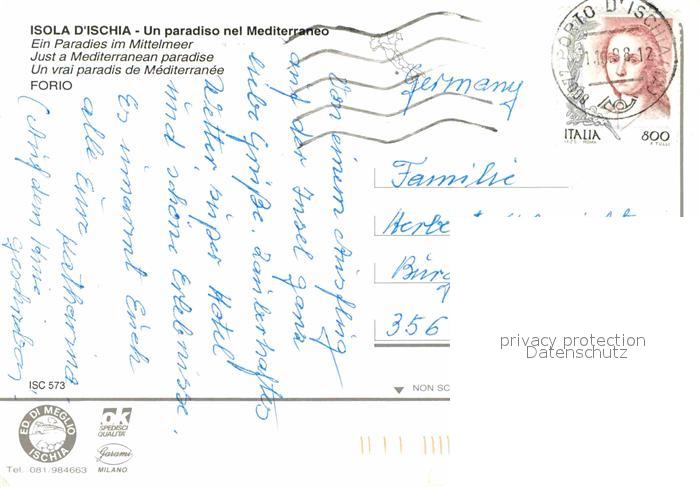 ISOLA D'ISCHIA - Un paradiso nel Mediterraneo
Ein Paradies im Mittelmeer
Just a Mediterranean paradise
Un vrai paradis de Méditerranée
FORIO
Von einem Ausflug
auf der Insel ganz
liebe Grüße. Zauberhaftes
Wetter super Hotel
und schöne Erlebnisse.
Es umarmt Euch
alle Eure Katharina
(Auf dem Knie
geschrieben)
ISC 573
ED. DI MEGLIO
ISCHIA
Tel. 081/984663
OK
SPEDISCI
QUALITÀ
Garami
MILANO
PORTO D'ISCHIA
ITALIA 800
I.P.Z.S. ROMA
F. TULLI
Germany
Familie
Bürg
356
NON SC
privacy protection
Datenschutz